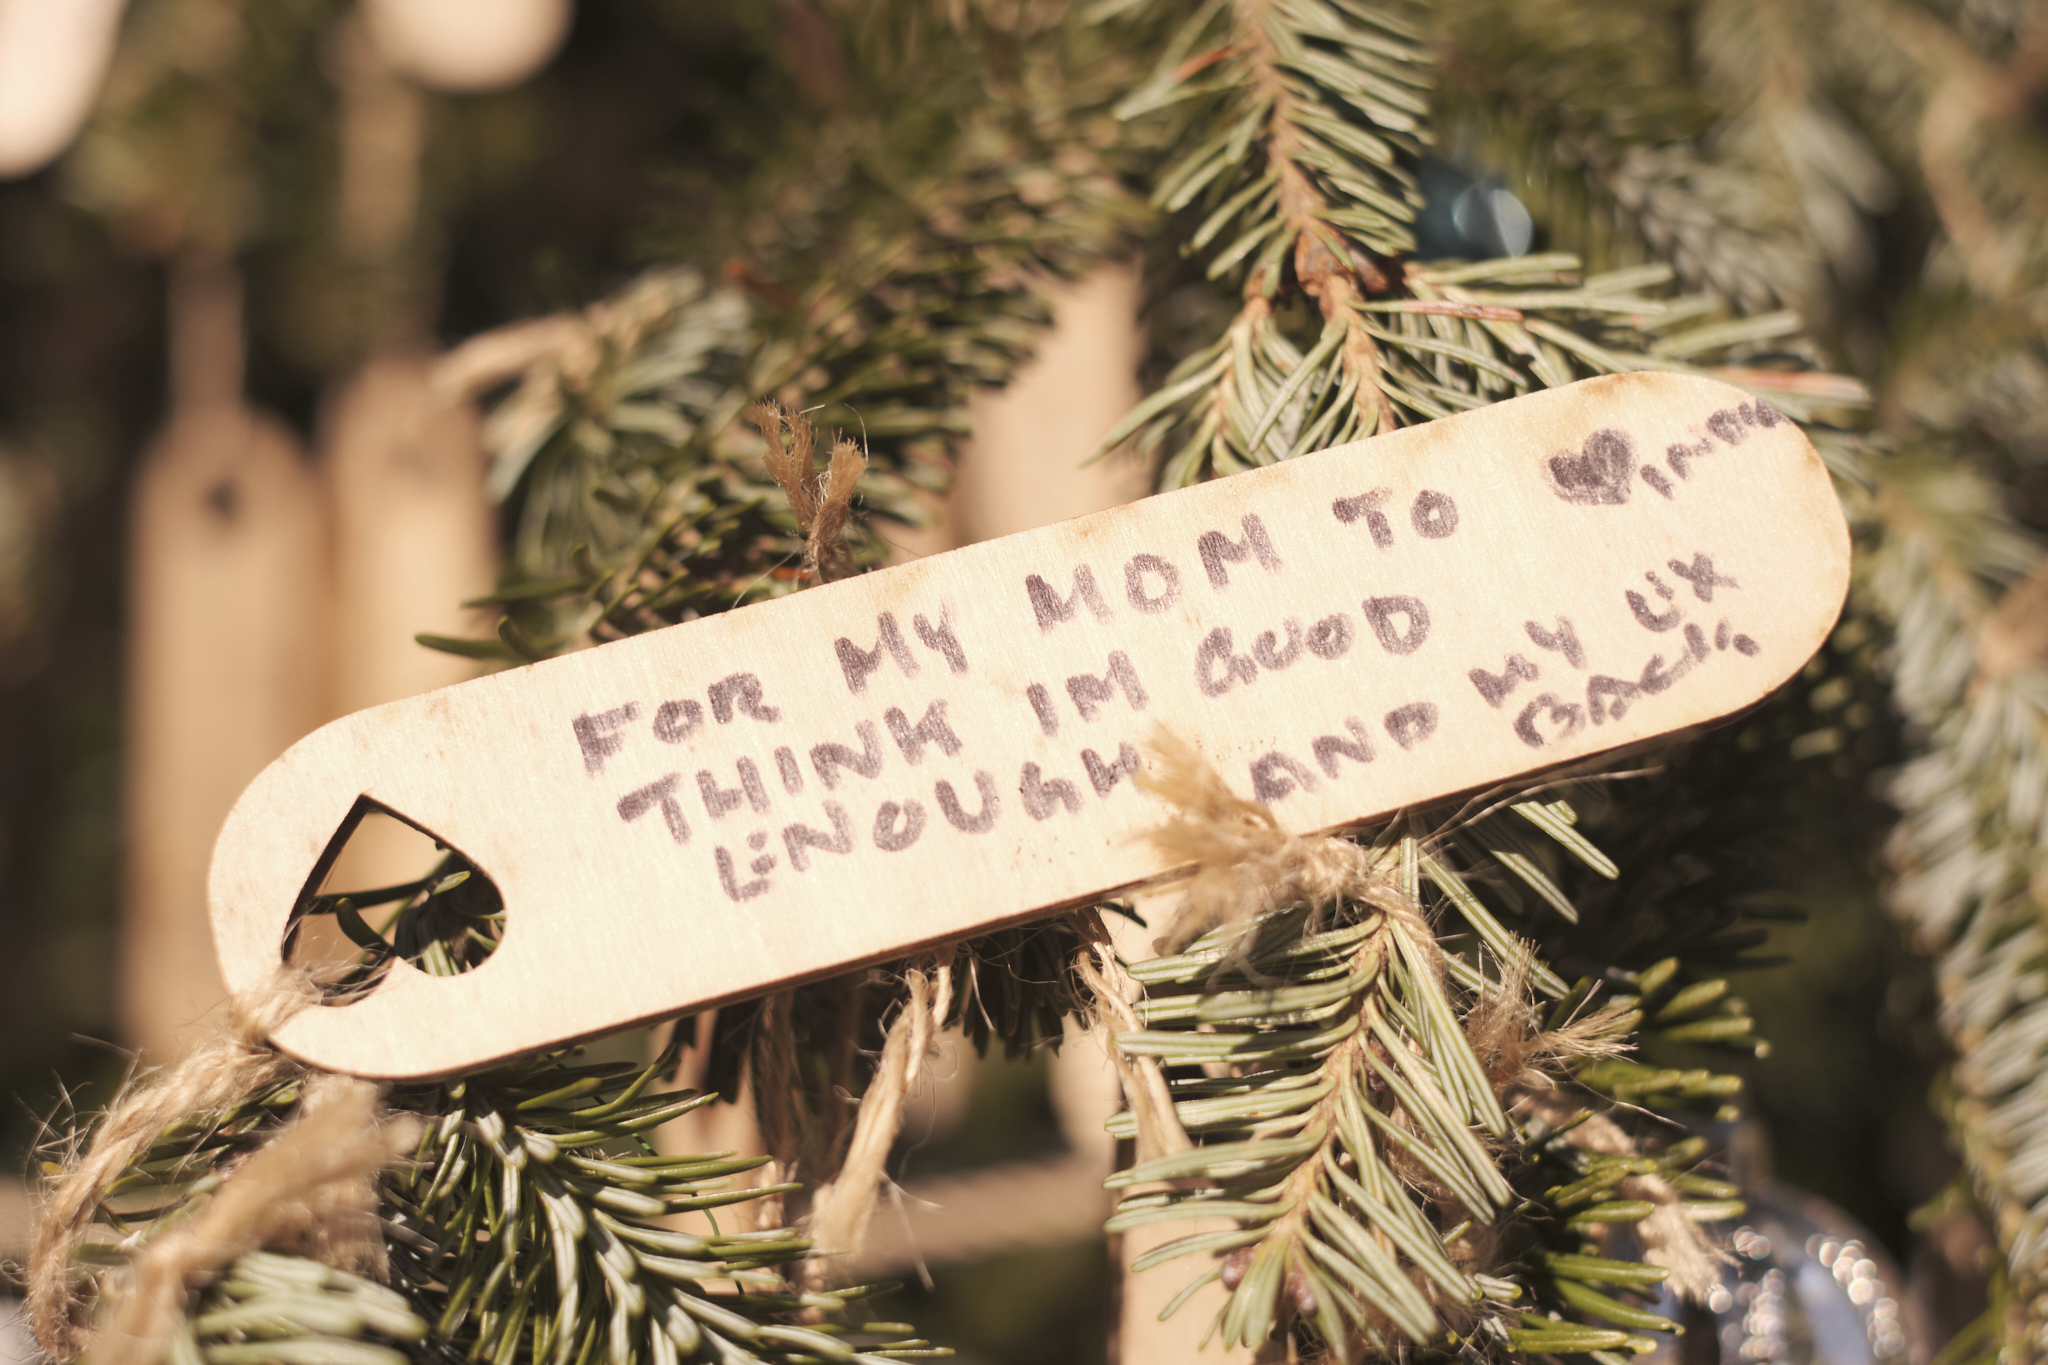 FOR MY MOM TO
THINK IM GOOD
ENOUGH AND MY
BACK